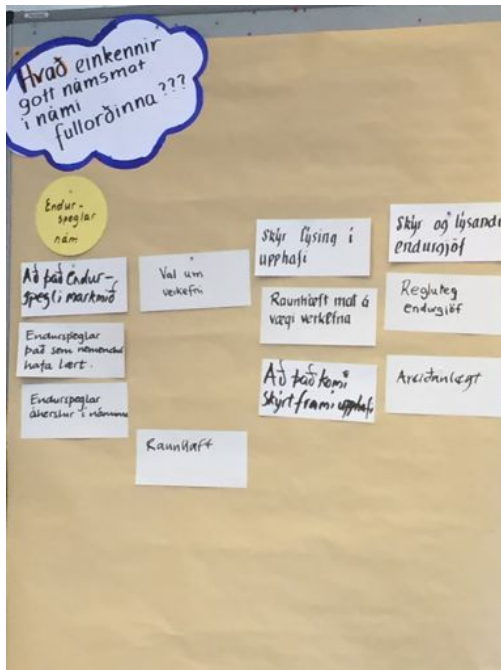 Hvað einkennir
gott námsmat
í námi
fullorðinna???
Endur-
speglar
nám
Að það endur-
spegli markmið
Endurspeglar
það sem nemendur
hafa lært.
Endurspeglar
áherslur í náminu
Val um
verkefni
Raunhæft
Skýr lýsing í
upphafi
Raunhæft mat á
vægi verkefna
Að það komi
skýrt fram í upphafi
Skýr og lýsandi
endurgjöf
Regluleg
endurgjöf
Areiðanlegt